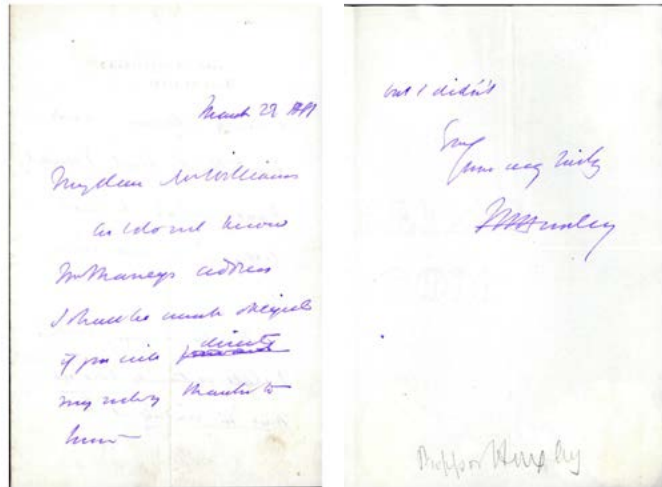 March 29
My dear Mr Williams
As I do not know
Mr 's address
I shall be much obliged
if you will direct
my reply thanks to
him
but I didn't
Ever
yours very truly
T H Huxley
Professor Huxley